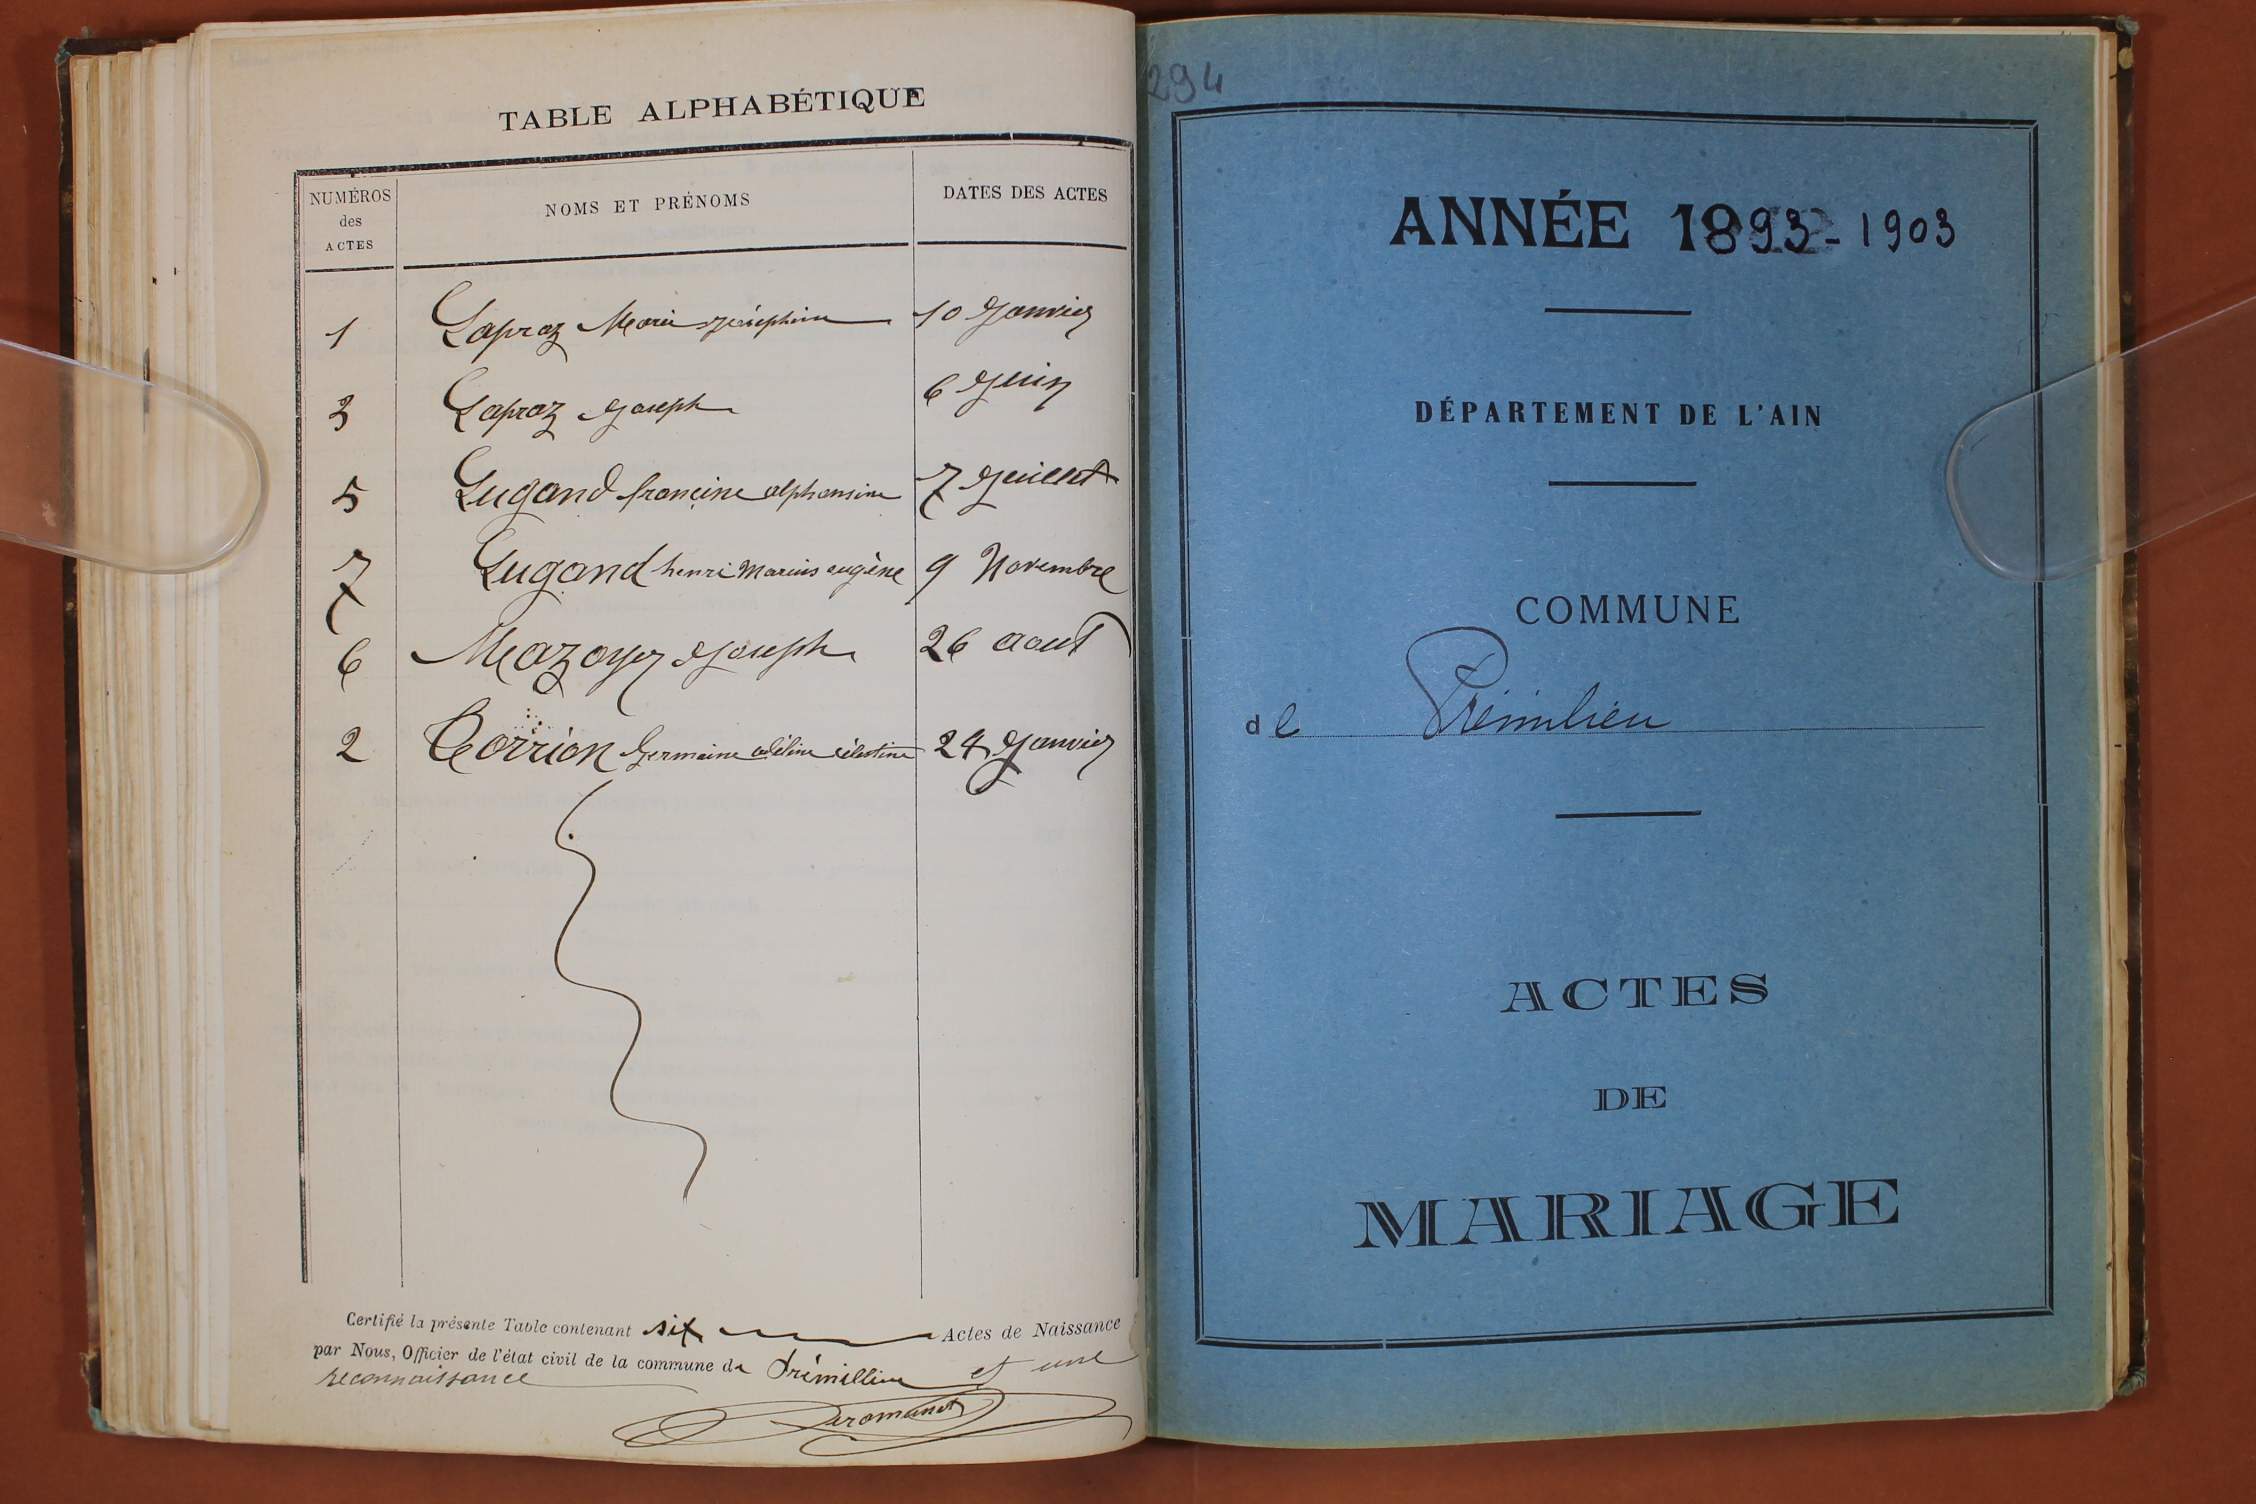 TABLE ALPHABÉTIQUE
NUMÉROS
des
ACTES
NOMS ET PRÉNOMS
DATES DES ACTES
1 Lapraz Marie Joséphine 10 Janvier
3 Lapraz Joseph 6 Juin
5 Lugand francine alphonsine 7 Juillet
7 Lugand henri Marius eugène 9 Novembre
6 Mazoyer Joseph 26 aout
2 Corrion Germaine adéline célestine 24 Janvier
Certifié la présente Table contenant six Actes de Naissance
par Nous, Officier de l'état civil de la commune de Prémillieu et une
reconnaissance
294
ANNÉE 1893-1903
DÉPARTEMENT DE L'AIN
COMMUNE
de Prémilieu
ACTES
DE
MARIAGE